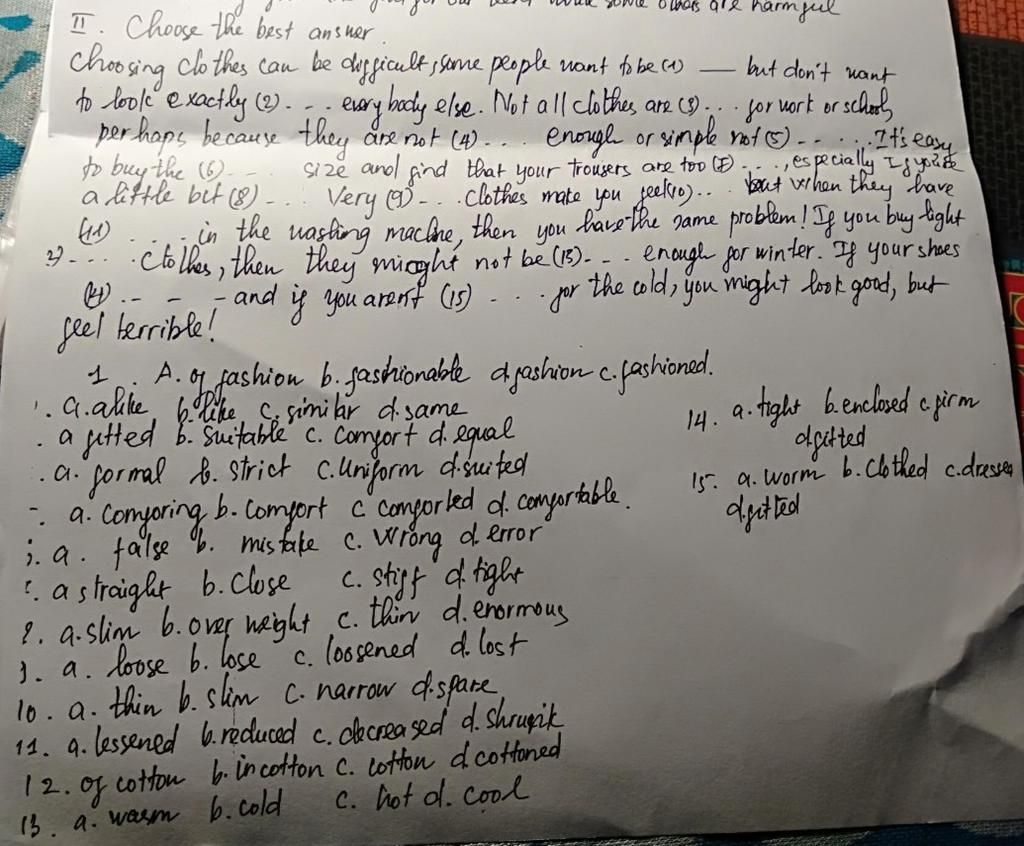 some others are harmful
II. Choose the best answer.
Choosing clothes can be difficult, some people want to be (1) — but don't want
to look exactly (2) . - . . everybody else. Not all clothes are (3) . . . for work or school,
perhaps because they are not (4) . . . enough or simple not (5) - - . . . It's easy
to buy the (6) - - . size and find that your trousers are too (7) . . ., especially If you're
a little bit (8) - . . Very (9) - . . clothes make you feel (10) . . but when they have
(11) . . . . in the washing machne, then you have the same problem! If you buy light
2) - . . . . clothes, then they miight not be (13) - . . enough for winter. If your shoes
(4) . - - - and if you aren't (15) . . . . for the cold, you might look good, but
feel terrible!
1. A. of fashion b. fashionable d fashion c. fashioned.
. a. alike b. like c. similar d. same
. a fitted b. suitable c. comfort d. equal
. a. formal b. strict c. uniform d. suited
- a. comforing b. comfort c comforted d. comfortable.
a. false b. mistake c. wrong d. error
a straight b. close c. stiff d. tight
8. a. slim b. over weight c. thin d. enormous
a. loose b. lose c. loosened d. lost
10. a. thin b. slim c. narrow d. spare
11. a. lessened b. reduced c. decreased d.
12. of cotton b. in cotton c. cotton d cottoned
13. a. warm b. cold c. hot d. cool
14. a. tight b. enclosed c. firm
d. fitted
15. a. worm b. clothed c. dressed
d. fitted